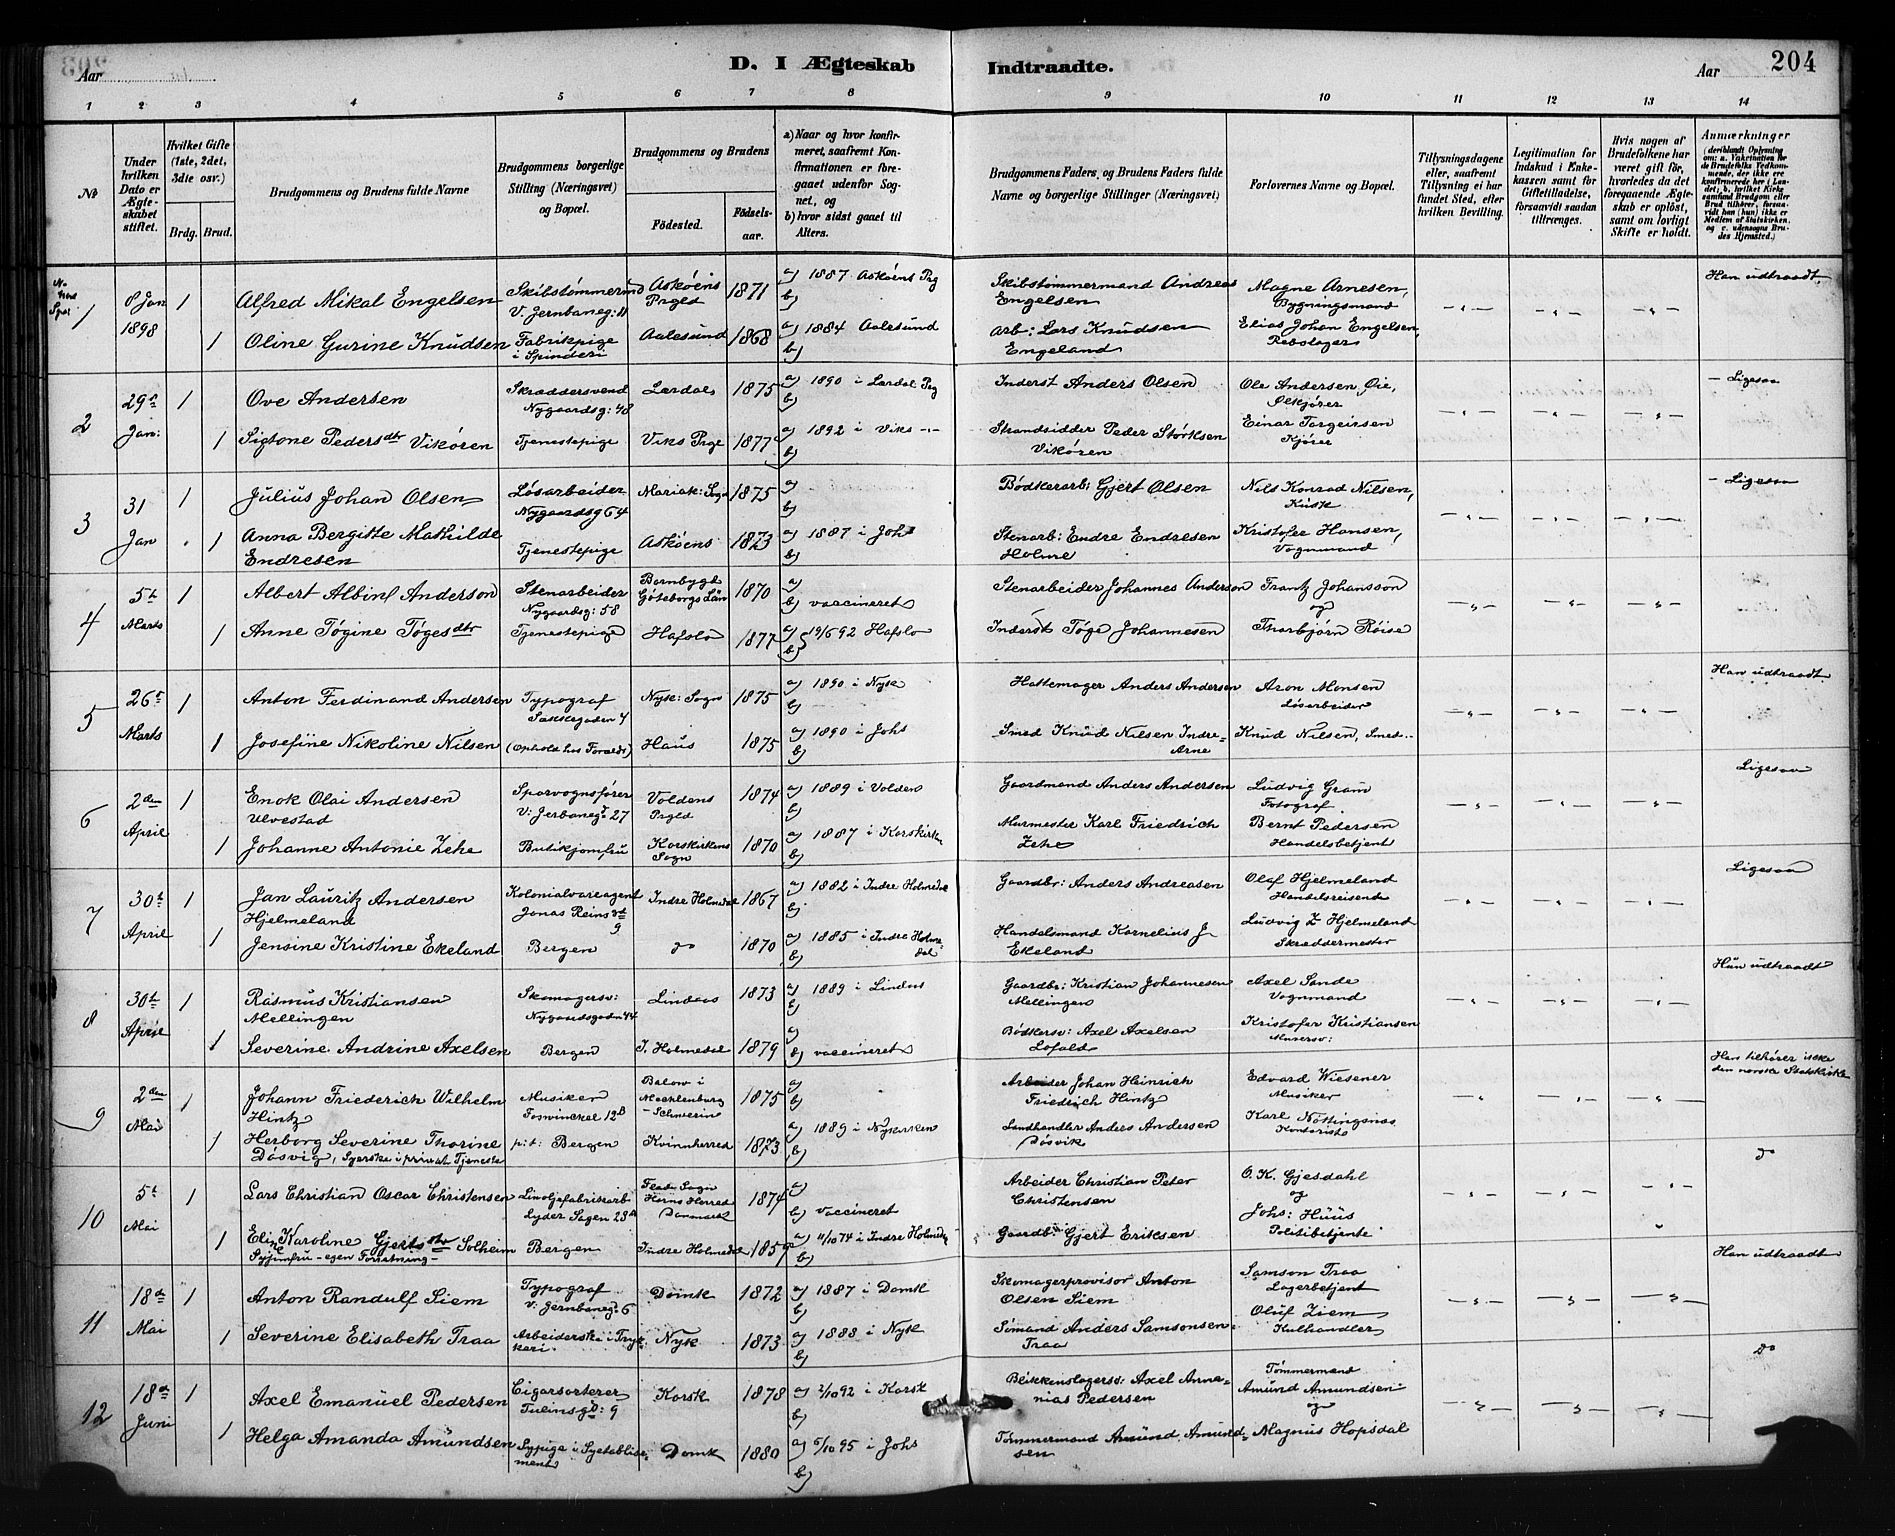 204
D. I Ægteskab Indtraadte.
Aar
Aar
1 2 3 4 5 6 7 8 9 10 11 12 13 14
No
Under hvilken Dato er Ægteskabet stiftet.
Hvilket Gifte (1ste, 2det, 3die osv.)
Brdg. Brud.
Brudgommens og Brudens fulde Navne
Brudgommens borgerlige Stilling (Næringsvei) og Bopæl.
Brudgommens og Brudens
Fødested.
Fødselsaar.
a) Naar og hvor konfirmeret, saafremt Konfirmationen er foregaaet udenfor Sognet, og
b) hvor sidst gaaet til Alters.
Brudgommens Faders, og Brudens Faders fulde Navne og borgerlige Stillinger (Næringsvei)
Forlovernes Navne og Bopæl.
Tillysningsdagene eller, saafremt Tillysning ei har fundet Sted, efter hvilken Bevilling.
Legitimation for Indskud i Enkekassen samt for Giftetilladelse, forsaavidt saadan tiltrænges.
Hvis nogen af Brudefolkene har været gift før, hvorledes da det foregaaende Ægteskab er opløst, samt om lovligt Skifte er holdt.
Anmærkninger
1 8 Jan 1898 1 Alfred Mikal Engelsen Skibstømmermd V. Jernbaneg: 11 Askøens Prgld 1871 a) 1887 Askøens Prg b) Skibstømmermand Andreas Engelsen Magne Arnesen, Bygningsmand Han udtraadt
1 Oline Gurine Knudsen Fabrikpige i Spinderi Aalesund 1868 a) 1884 Aalesund b) Arb: Lars Knudsen Engeland Elias Johan Engelsen, Rebslager
2 29 Jan: 1 Ove Andersen Skræddersvend Nygaardsg: 48 Lærdal 1875 a) 1890 i Lærdal Prg b) Inderst Anders Olsen Ole Andersen Øie, Ølkjører - Ligesaa
1 Sigtone Pedersdtr Vikøren Tjenestepige Viks Prge 1877 a) 1892 i Viks b) Strandsidder Peder Størksen Vikøren Einar Torgeirsen Kjører
3 31 Jan 1 Julius Johan Olsen Løsarbeider Nygaardsg 64 Mariak: Sogn 1875 a) b) Bødkerarb: Gjert Olsen Nils Konrad Nilsen, Kusk - Ligesaa
1 Anna Bergitte Mathilde Endresen Tjenestepige Askøens 1873 a) 1887 i Johs b) Stenarb: Endre Endresen Holme Kristofer Hansen, Vognmand
4 5t Marts 1 Albert Albin Anderson Stenarbeider Nygaardsg: 58 Göteborgs Län 1870 a) b) vaccineret Stenarbeider Johannes Anderson Frantz Johansson og
1 Anne Tøgine Tøgesdtr Tjenestepige Hafslo 1877 a) 19/6 92 Hafslo b) Inderst Tøge Johannesen Thorbjørn Røise
5 26t Marts 1 Anton Ferdinand Andersen Typograf Nyk: Sogn 1875 a) 1890 i Nyk b) Hattemager Anders Andersen Aron Monsen Løsarbeider Han udtraadt
1 Josefine Nikoline Nilsen (Ophold hos Forældr) Haus 1875 a) 1890 i Johs b) Smed Knud Nilsen Indre Arne Knud Nilsen, Smed
6 2den April 1 Enok Olai Andersen Ulvestad Sporvognsfører V: Jerbaneg 27 Voldens Prgld 1874 a) 1889 i Volden b) Gaardmand Anders Andersen Ludvig Gram Fotograf Ligesaa
1 Johanne Antonie Zehe Butikjomfru Korskirkens Sogn 1870 a) 1887 i Korskirken b) Murmester Karl Friedrich Zehe Bernt Pedersen Handelsbetjent
7 30t April 1 Jan Lauritz Andersen Hjelmeland Kolonialvareagent Jonas Reins gt 9 Indre Holmedal 1867 a) 1882 i Indre Holmedal b) Gaardbr: Anders Andreasen Olaf Hjelmeland Handelsreisende Ligesaa
1 Jensine Kristine Ekeland Bergen do 1870 a) 1885 i Indre Holmedal b) Handelsmand Kornelius J. Ekeland Ludvig Z Hjelmeland Skræddermester
8 30t April 1 Rasmus Kristiansen Mellingen Skomagersv: Nygaardsgaden 44 Lindaas 1873 a) 1889 i Lindaas b) Gaardbr: Kristian Johannesen Mellingen Axel Sande Vognmand Hun udtraadt
1 Severine Andrine Axelsen Bergen I. Holmedal 1879 a) b) vaccineret Bødkersv: Axel Axelsen Kristofer Kristiansen Murersv:
9 2den Mai 1 Johann Friederich Wilhelm Hintz Musiker Fosvinckel 12B Balow i Mecklenburg - Schwerin 1875 a) b) Arbeider Johan Heinrich Friedrich Hintz Edvard Wiesener Musiker Han tilhører ikke den norske Statskirke
1 Herborg Severine Thorine Døsvig, Syerske i privat Tjeneste Bergen Kvinnherred 1873 a) 1889 i Nykirken b) Landhandler Anders Andersen Døsvik Karl Nøttingsnes Kontorist
10 5t Mai 1 Lars Christian Oscar Christensen Linoljefabrikarb Lyder Sagen 23 Horns Herred Danmark 1874 a) b) vaccineret Arbeider Christian Peter Christensen O. K. Gjesdahl og do
1 Elin Karoline Gjertsdtr Solheim Syjomfru - egen Forretning - Bergen Indre Holmedal 1859 a) 11/10 74 i Indre Holmedal b) Gaardb: Gjert Eriksen Johs: Huus Politibetjente
11 18de Mai 1 Anton Randulf Siem Typograf V: Jernbaneg: 6 Domk 1872 a) 1887 i Domk b) Skomagerprovisor Anton Olsen Siem Samson Traa Lagerbetjent Han udtraadt
1 Severine Elisabeth Traa Arbeiderske i Trykkeri. Nyk 1873 a) 1888 i Nyk b) Sømand Anders Samsonsen Traa Oluf Ziem Kulhandler
12 18de Juni 1 Axel Emanuel Pedersen Cigarsorterer Tulinsgd: 9 Korsk 1878 a) 2/10 92 i Korsk b) Blikkenslagersv: Axel Annanias Pedersen Tømmermand Amund Amundsen og do
1 Helga Amanda Amundsen Sypige i Syetablissement Domk 1880 a) 5/10 95 i Johs b) Tømmermand Amund Amundsen Magnus Hopsdal